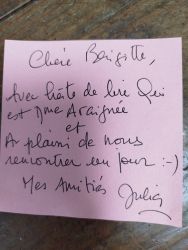 Chère Brigitte,
Avec hâte de lire Qui
est Mme Araignée
et
A plaisir de nous
rencontrer un jour :-)
Mes Amitiés
Julia